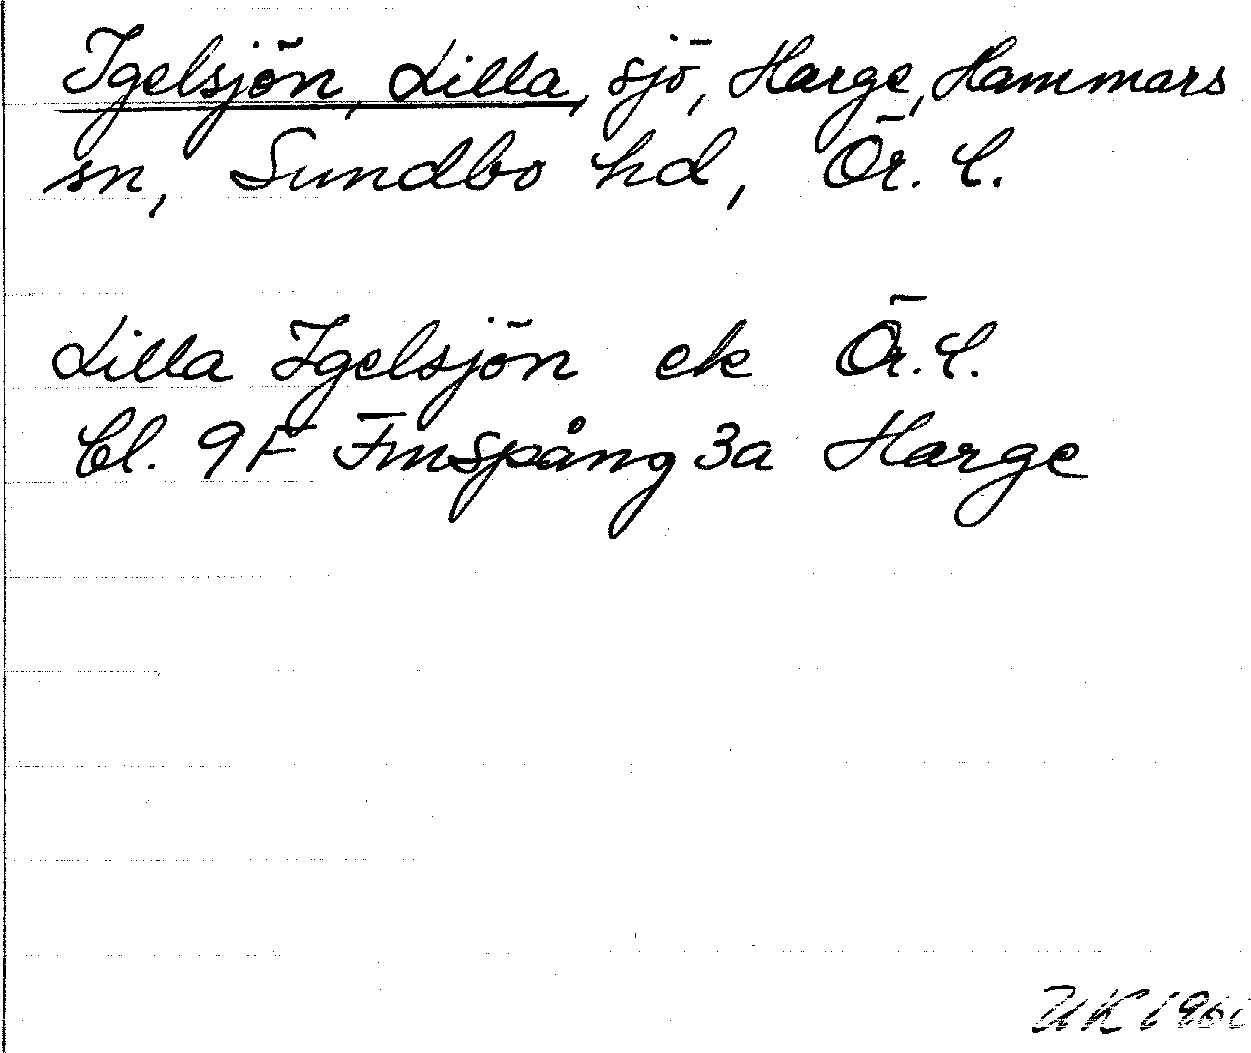 Igelsjön, Lilla, sjö, Harge, Hammars
sn, Sundbo hd, Ör. l.
Lilla Igelsjön ek Ör. l.
bl. 9F Finspång 3a Harge
UK